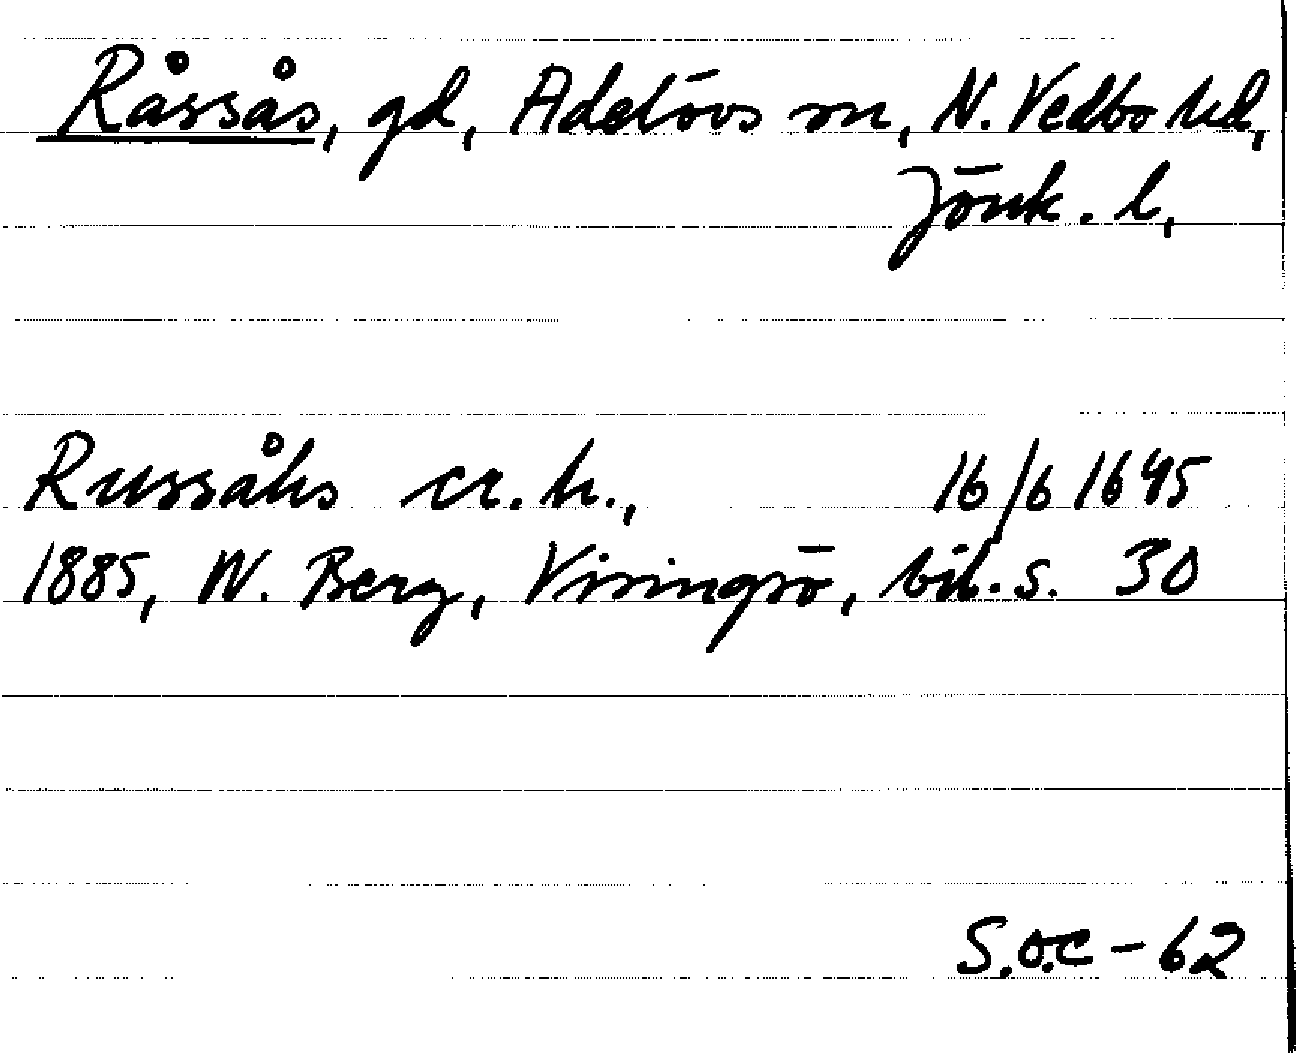 Råssås, gd, Adelövs sn, N. Vedbo hd,
Jönk. l,
Russåhs cr. h., 16/6 1645
1885, W. Berg, Visingsö, bil. s. 30
S.O.C - 62